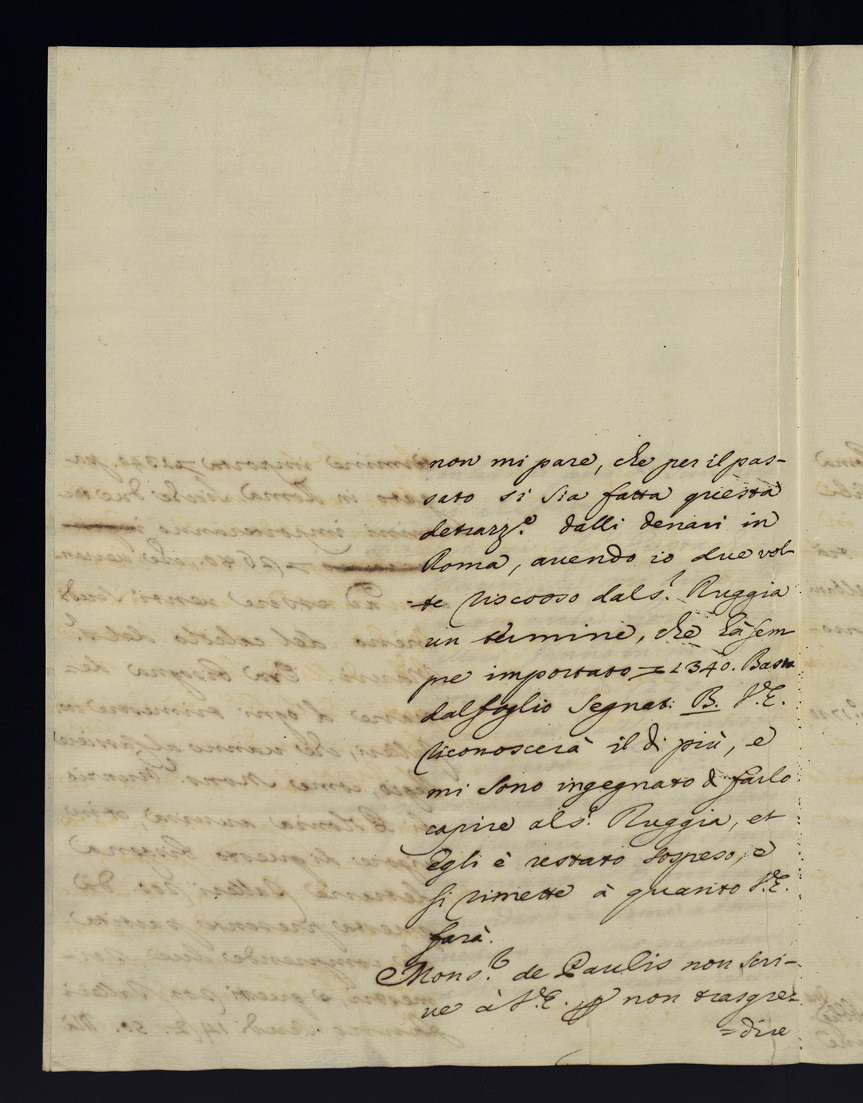 non mi pare, che per il pas-
sato si sia fatta questa
detrazz.e dalli denari in
Roma, avendo io due vol-
te riscosso dal s.r Ruggia
un termine, che hà sem
pre importato 1340. Basta
dal foglio segnat. B. V.E.
riconoscerà il di più, e
mi sono ingegnato di farlo
capire al s.r Ruggia, et
Egli è restato sospeso, e
si rimette à quanto V.E.
farà.
Mons.r de Paulis non scri-
ve à V.E. p non trasgre-
=dire